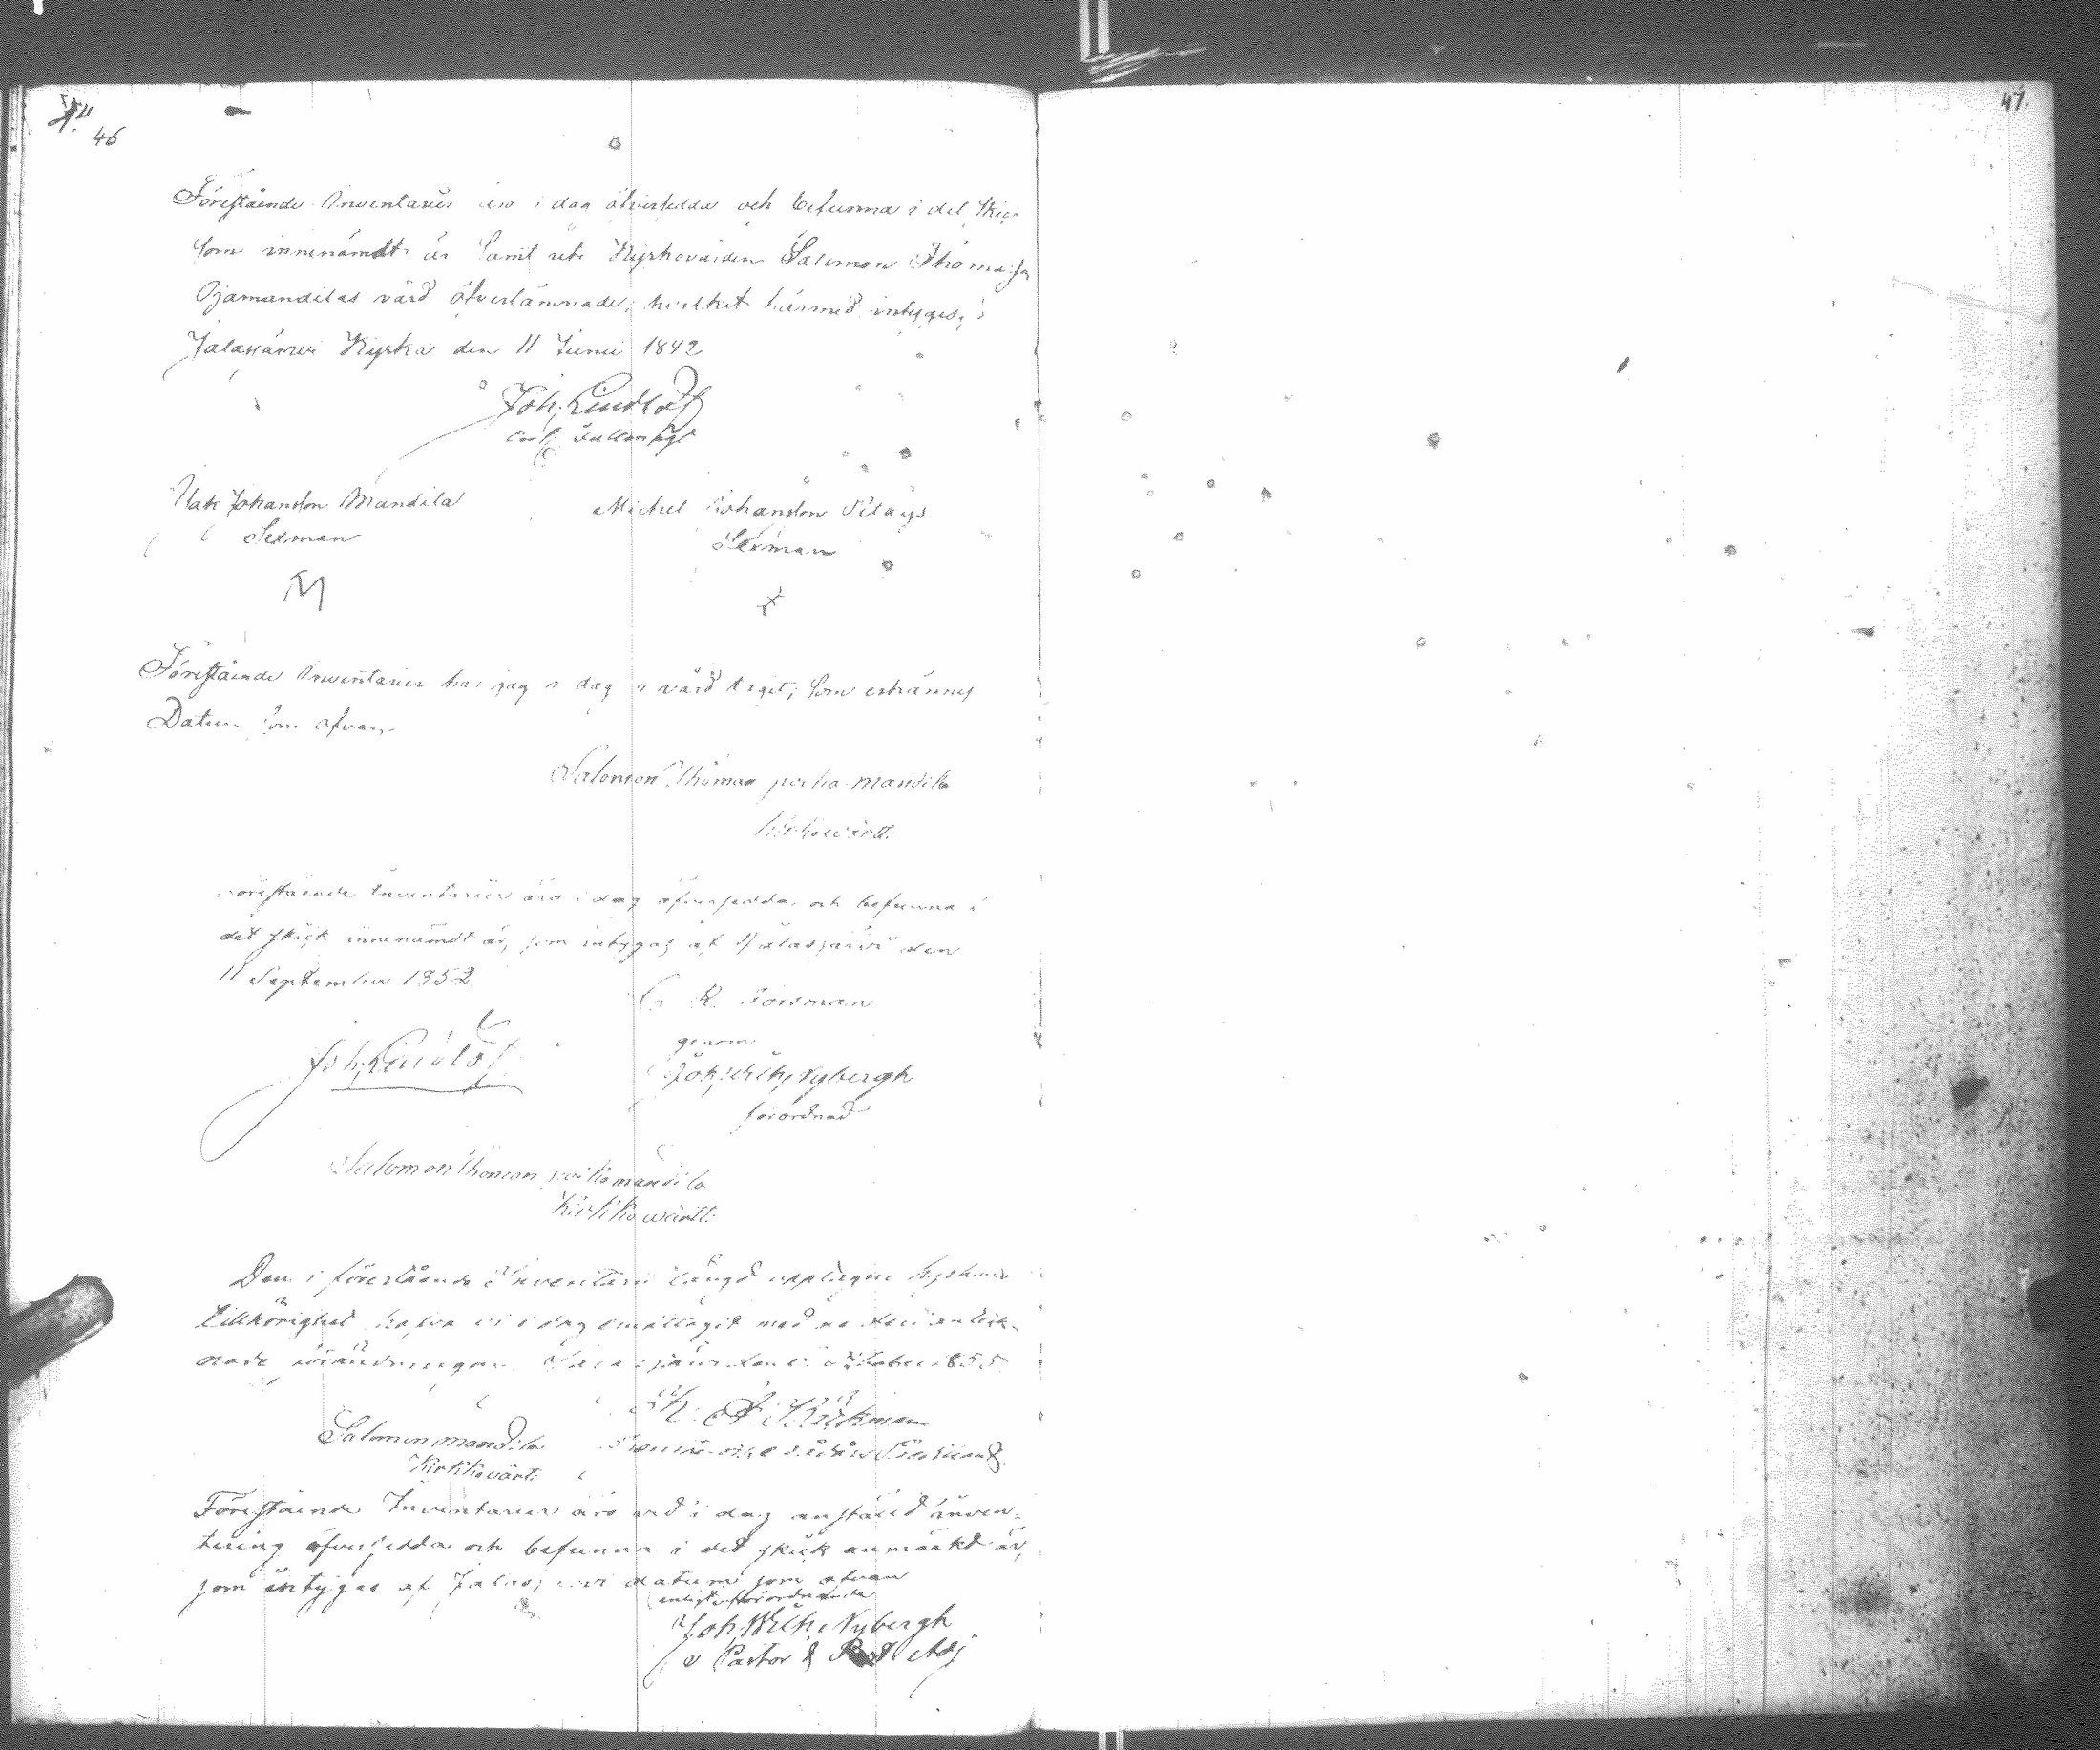 46
47.
Föreståinde Inventarier äro i dag öfversedda och befunna i det skic
som innenämdt är samt uti Kyrkovärden Salomon Thomasson
Ojamandilas vård öfverlämnade, hvilket härmed intygas, i
Jalasjärvi Kyrka den 11 Junii 1842
Joh, Lindlöf
enl. fullmagt
Isak Johansson Mandila
Michel Johansson Pilays
Sexman
Sexman
Föreståinde Inventarier har jag i dag i vård tagit, som erkännes
Datum som ofvan.
Salomon Thomas perka-mandila
kirkowärtti
Föreståinde Inventarier äro i dag öfversedda och befunna i
det skick innenämdt är, som intygas af Jalasjärvi den
11 September 1852.
G R. Forsman
genom
Joh, Lindlöf
Joh, Wilh, Nybergh
förordnad
Salomon Thomon perkomandila
Kirkkowärtti
Den i förestående Inventarii längd upptagne kyrkans
tillhörighet hafva vi i dag emottagit med de deri anteck-
nade förändringar. Jalasjärvi den Oktober 1855
Salomon mandila
Kirkkovärti
Föreståinde Inventarier äro vid i dag anstäld inven-
tering öfversedda och befunna i det skick anmärkt är,
som intygas af Jalasjärvi datum som ofvan
enligt förordnande
Joh, Wilh, Nybergh
v Pastor & Adj